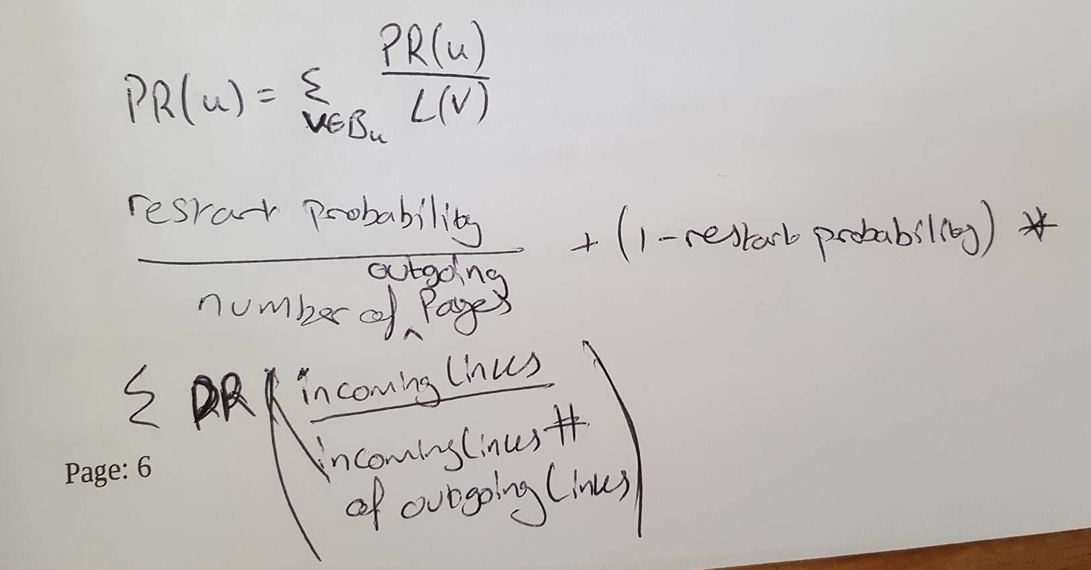 PR(u) = Σ_{v∈B_u} PR(u) / L(v)
restart probability / number of ^outgoing pages + (1 - restart probability) *
Σ PR (incoming links / incoming links # of outgoing links)
Page: 6